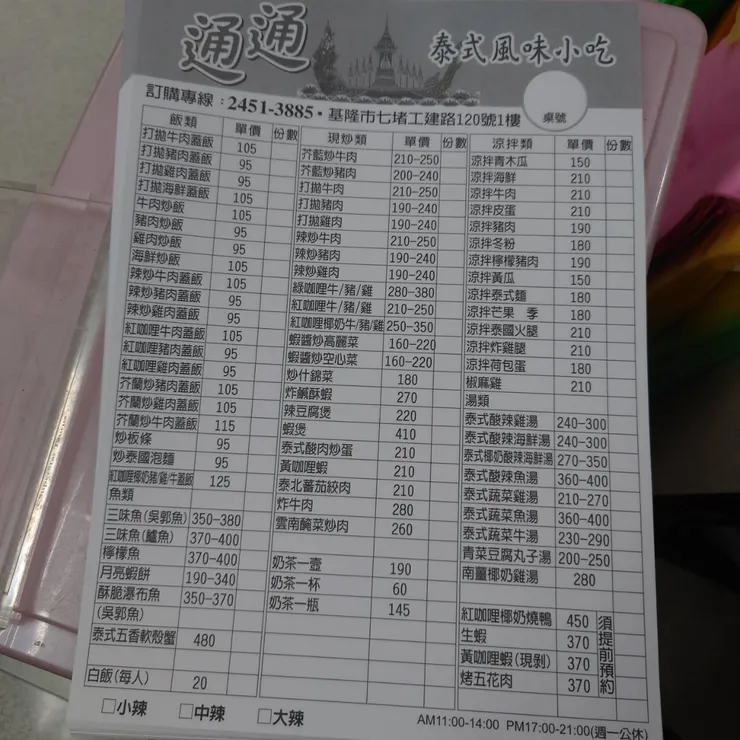 通通 泰式風味小吃
訂購專線：2451-3885・基隆市七堵工建路120號1樓
桌號
飯類 單價 份數
打拋牛肉蓋飯 105
打拋豬肉蓋飯 95
打拋雞肉蓋飯 95
打拋海鮮蓋飯 105
牛肉炒飯 105
豬肉炒飯 95
雞肉炒飯 95
海鮮炒飯 105
辣炒牛肉蓋飯 105
辣炒豬肉蓋飯 95
辣炒雞肉蓋飯 95
紅咖哩牛肉蓋飯 105
紅咖哩豬肉蓋飯 95
紅咖哩雞肉蓋飯 95
芥蘭炒豬肉蓋飯 105
芥蘭炒雞肉蓋飯 105
芥蘭炒牛肉蓋飯 115
炒板條 95
炒泰國泡麵 95
紅咖哩椰奶豬/雞/牛蓋飯 125
魚類
三味魚(吳郭魚) 350-380
三味魚(鱸魚) 370-400
檸檬魚 370-400
月亮蝦餅 190-340
酥脆瀑布魚 350-370
(吳郭魚)
泰式五香軟殼蟹 480
白飯(每人) 20
現炒類 單價 份數
芥藍炒牛肉 210-250
芥藍炒豬肉 200-240
打拋牛肉 210-250
打拋豬肉 190-240
打拋雞肉 190-240
辣炒牛肉 210-250
辣炒豬肉 190-240
辣炒雞肉 190-240
綠咖哩牛/豬/雞 280-380
紅咖哩牛/豬/雞 210-250
紅咖哩椰奶牛/豬/雞 250-350
蝦醬炒高麗菜 160-220
蝦醬炒空心菜 160-220
炒什錦菜 180
炸鹹酥蝦 270
辣豆腐煲 220
蝦煲 410
泰式酸肉炒蛋 210
黃咖哩蝦 210
泰北蕃茄絞肉 210
炸牛肉 280
雲南醃菜炒肉 260
奶茶一壺 190
奶茶一杯 60
奶茶一瓶 145
涼拌類 單價 份數
涼拌青木瓜 150
涼拌海鮮 210
涼拌牛肉 210
涼拌皮蛋 210
涼拌豬肉 190
涼拌冬粉 180
涼拌檸檬豬肉 190
涼拌黃瓜 150
涼拌泰式麵 180
涼拌芒果 季 180
涼拌泰國火腿 210
涼拌炸雞腿 210
涼拌荷包蛋 180
椒麻雞 210
湯類
泰式酸辣雞湯 240-300
泰式酸辣海鮮湯 240-300
泰式椰奶酸辣海鮮湯 270-350
泰式酸辣魚湯 360-400
泰式蔬菜雞湯 210-270
泰式蔬菜魚湯 360-400
泰式蔬菜牛湯 230-290
青菜豆腐丸子湯 200-250
南薑椰奶雞湯 280
紅咖哩椰奶燒鴨 450
生蝦 370
黃咖哩蝦(現剝) 370
烤五花肉 370
須提前預約
□小辣 □中辣 □大辣
AM11:00-14:00 PM17:00-21:00(週一公休)